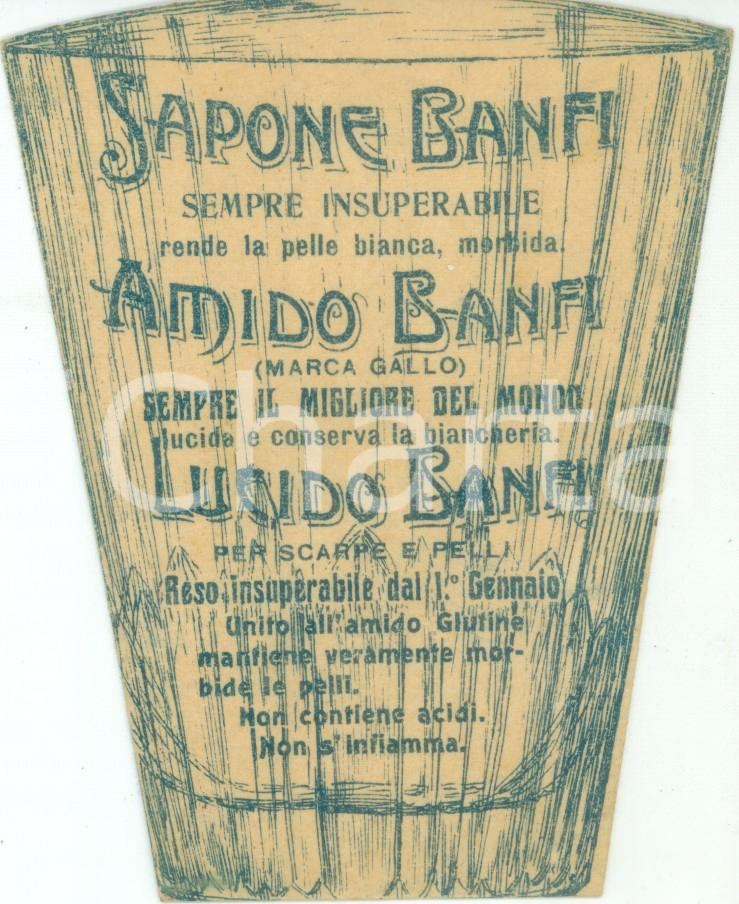 SAPONE BANFI
SEMPRE INSUPERABILE
rende la pelle bianca, morbida.
AMIDO BANFI
(MARCA GALLO)
SEMPRE IL MIGLIORE DEL MONDO
lucida e conserva la biancheria.
Charta
LUCIDO BANFI
PER SCARPE E PELLI
Reso insuperabile dal 1.º Gennaio
Unito all'amido Glutine
mantiene veramente mor-
bide le pelli.
Non contiene acidi.
Non s'infiamma.